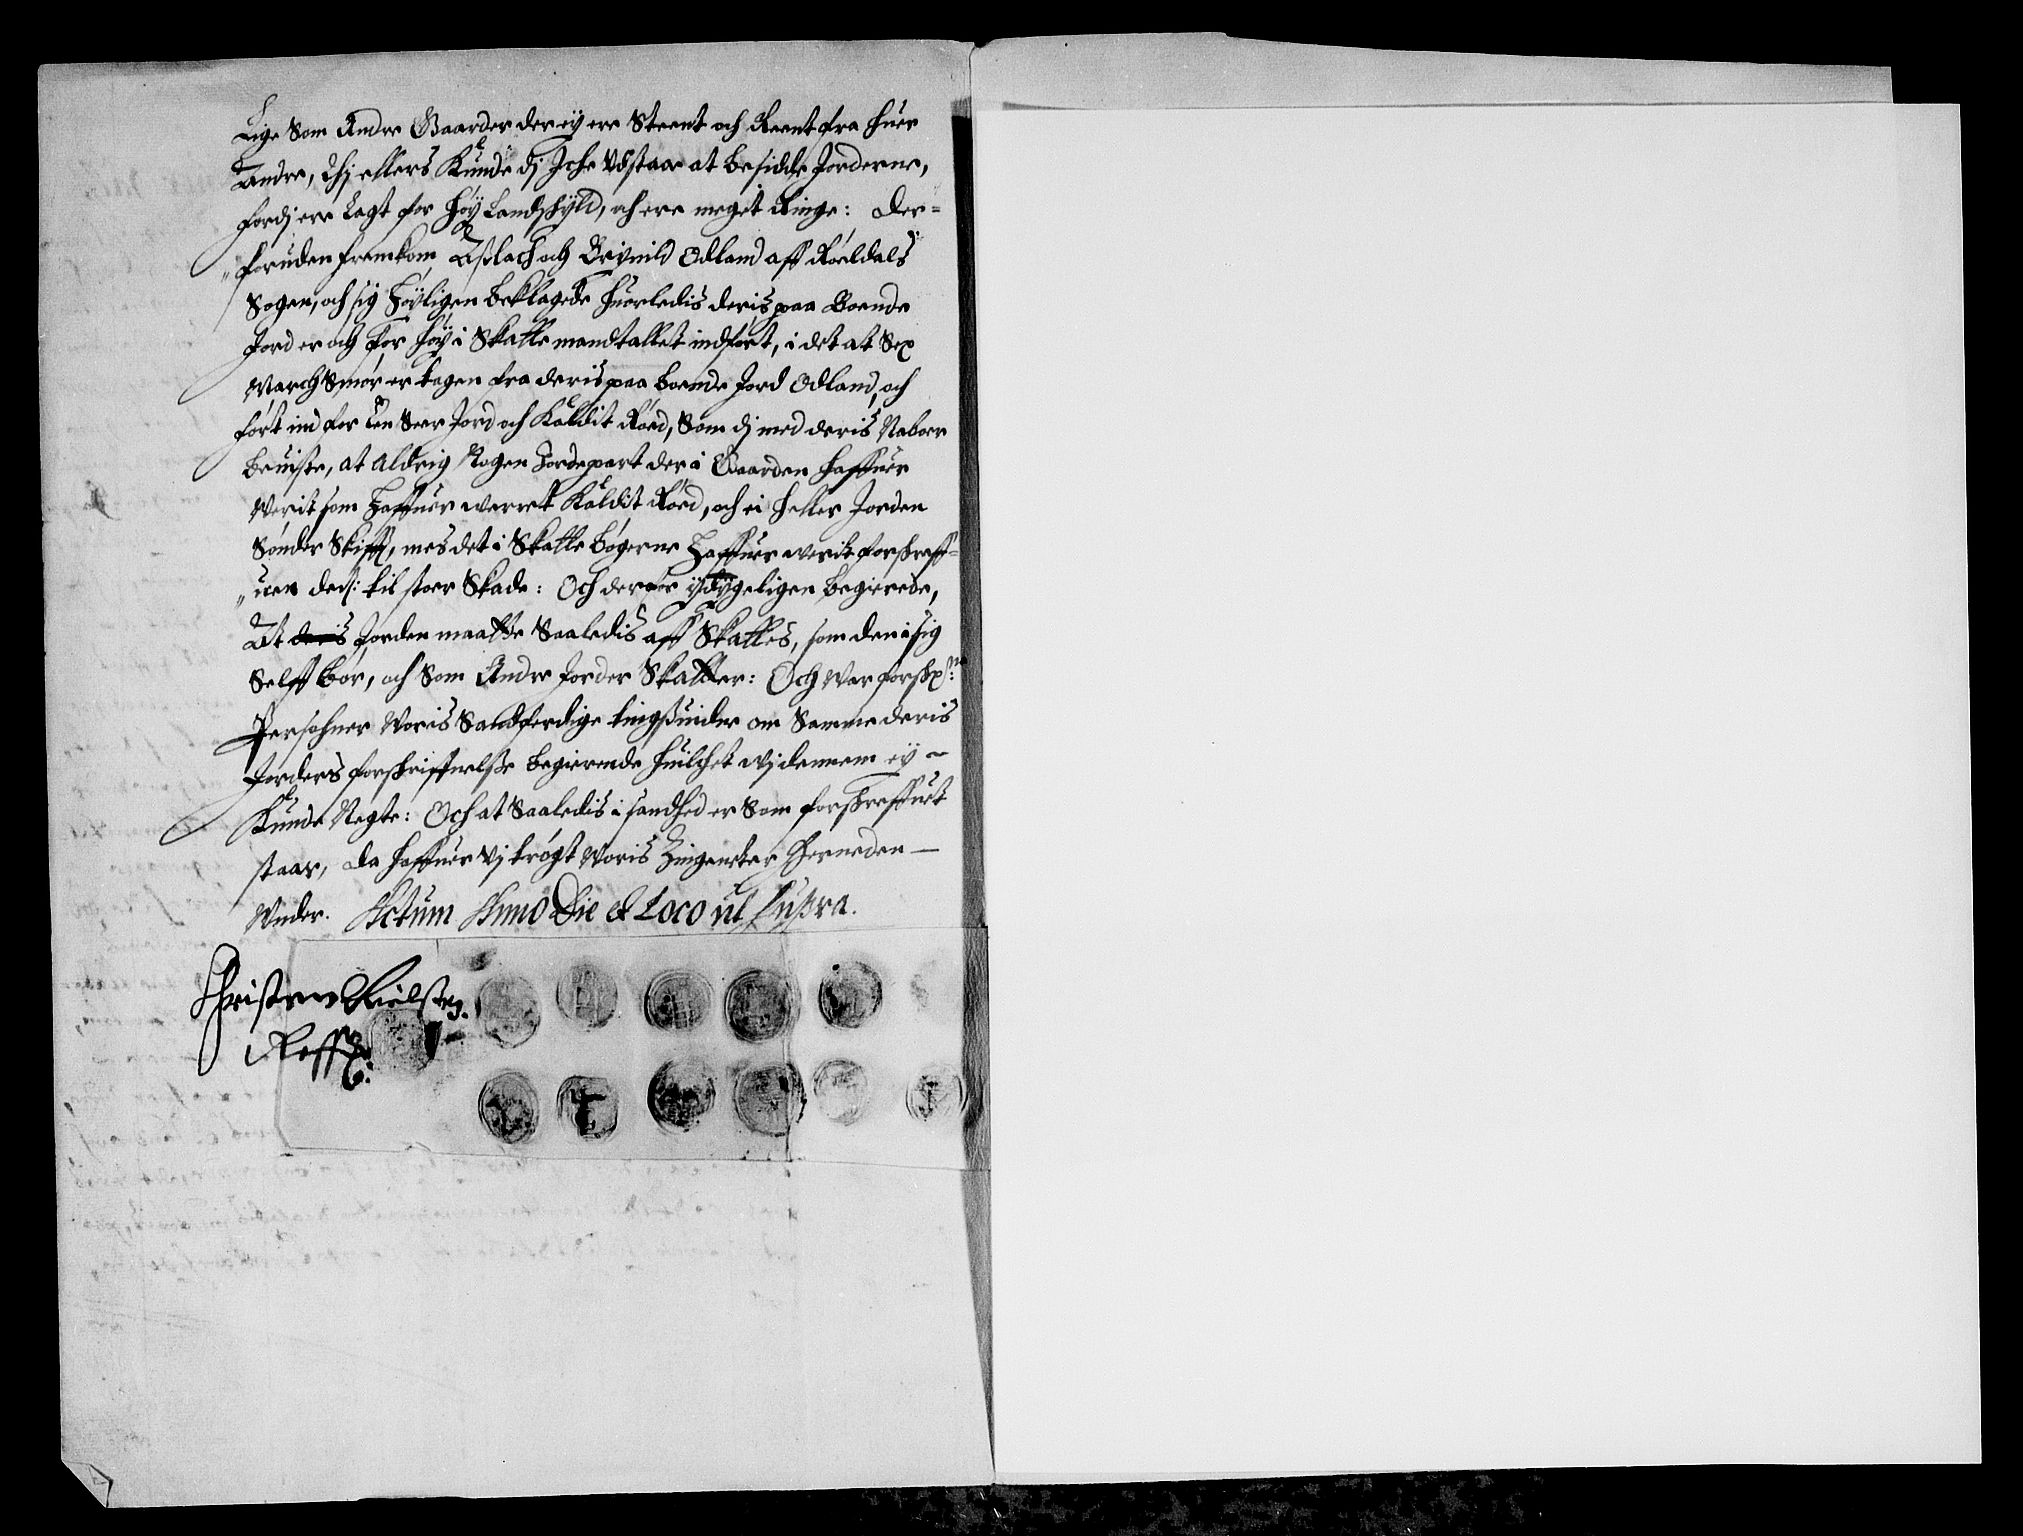 Lige Som Andre Gaarder der ey ere Steent och Reent fra huer
Andre, Thj ellers Kunde dj Iche Udstaae at besidde Jorderne,
fordj ere Lagt for høy Landschyld, och ere meget Ringe: Der=
foruden fremkom Aslach och Odland aff Røeldals
Sogen, och sig høyligen beklagede huorledis deris paa Boende
Jord er och for høy i Skatte mandtallet indført, i det at Sex
March Smør er tagen fra deris paa boende Jord Odland, och
ført ind for een Seer Jord och Kaldit Røed, Som dj med deris Naboer
beuiste, at aldrig Nogen Jordepart der i Gaarden haffuer
Verit som haffuer werret Kaldit Røed, och ei heller Jorden
Sønder Skifft, mens det i Skatte bøgerne haffuer werit forskreff=
uen til stoer Skade: Och derfor ydygeligen begierede,
At deris Jorden maatte Saaledis aff Skattes, som den i sig
Selff bør, och Som Andre Jorder Skatter: Och war forschr:ne
Persohner Woris Sandferdige tingswinder om Samme deris
Jorders forskriffuelse begierende huilchet wj dennem ey ~
Kunde Negte: Och at Saaledis i sandhed er Som forskreffuet
staar, da haffuer wj trøgt Woris Zingeneter herneden —
Under. Actum Anno Die et Loco ut supra.
Christen Nielssen